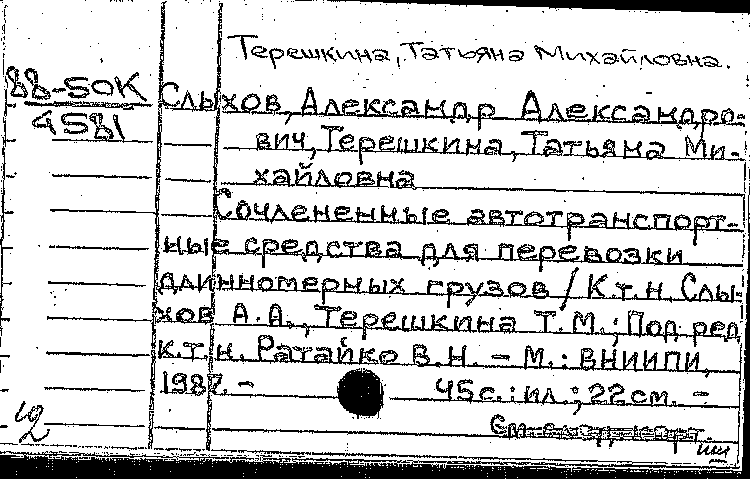 Терешкина, Татьяна Михайловна.
88-50К
4581
Слыхов, Александр Александро-
вич, Терешкина, Татьяна Ми-
хайловна
Сочлененные автотранспорт-
ные средства для перевозки
длинномерных грузов / К.т.н. Слы-
хов А.А., Терешкина Т.М.; Под ред.
к.т.н. Ратайко В.Н. – М.: ВНИИПИ,
1987. – 45 с.: ил.; 22 см. –
См. след. карт.